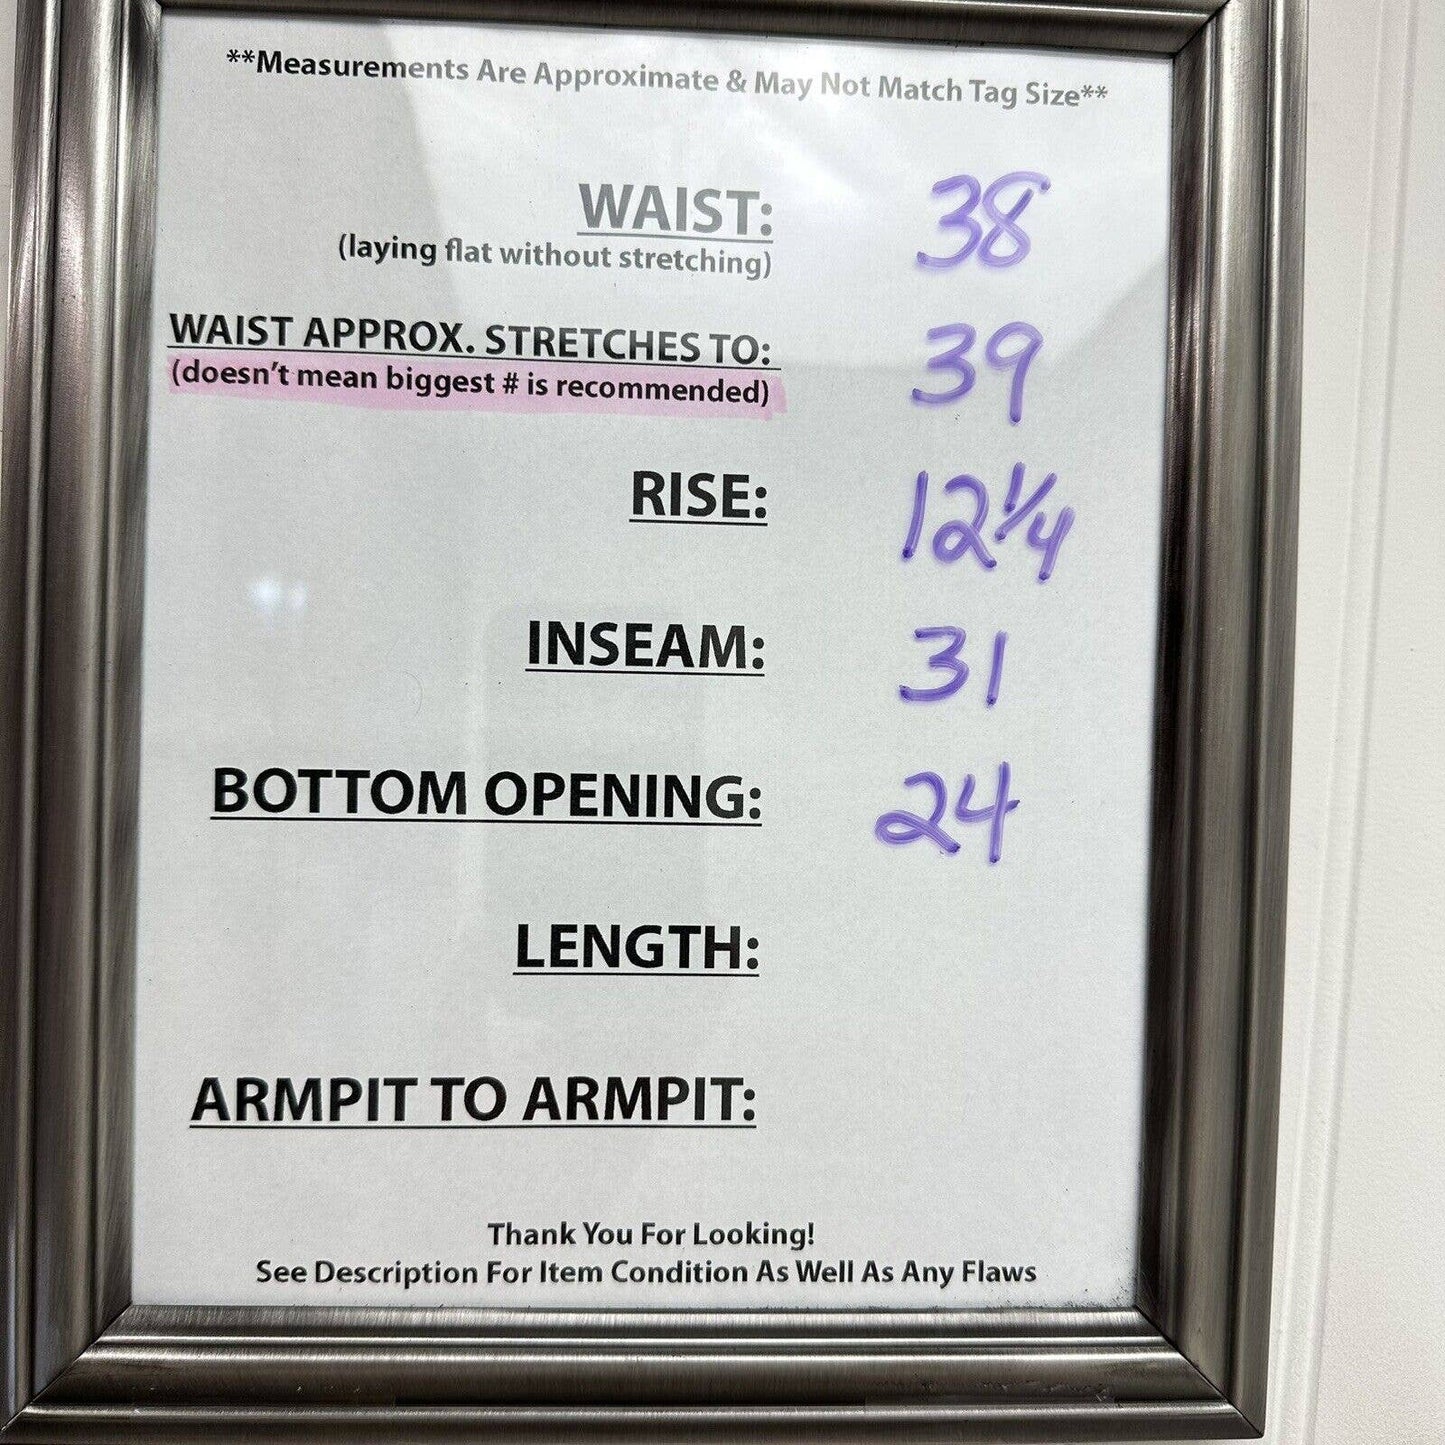 **Measurements Are Approximate & May Not Match Tag Size**
WAIST: 38
(laying flat without stretching)
WAIST APPROX. STRETCHES TO: 39
(doesn't mean biggest # is recommended)
RISE: 12 1/4
INSEAM: 31
BOTTOM OPENING: 24
LENGTH:
ARMPIT TO ARMPIT:
Thank You For Looking!
See Description For Item Condition As Well As Any Flaws